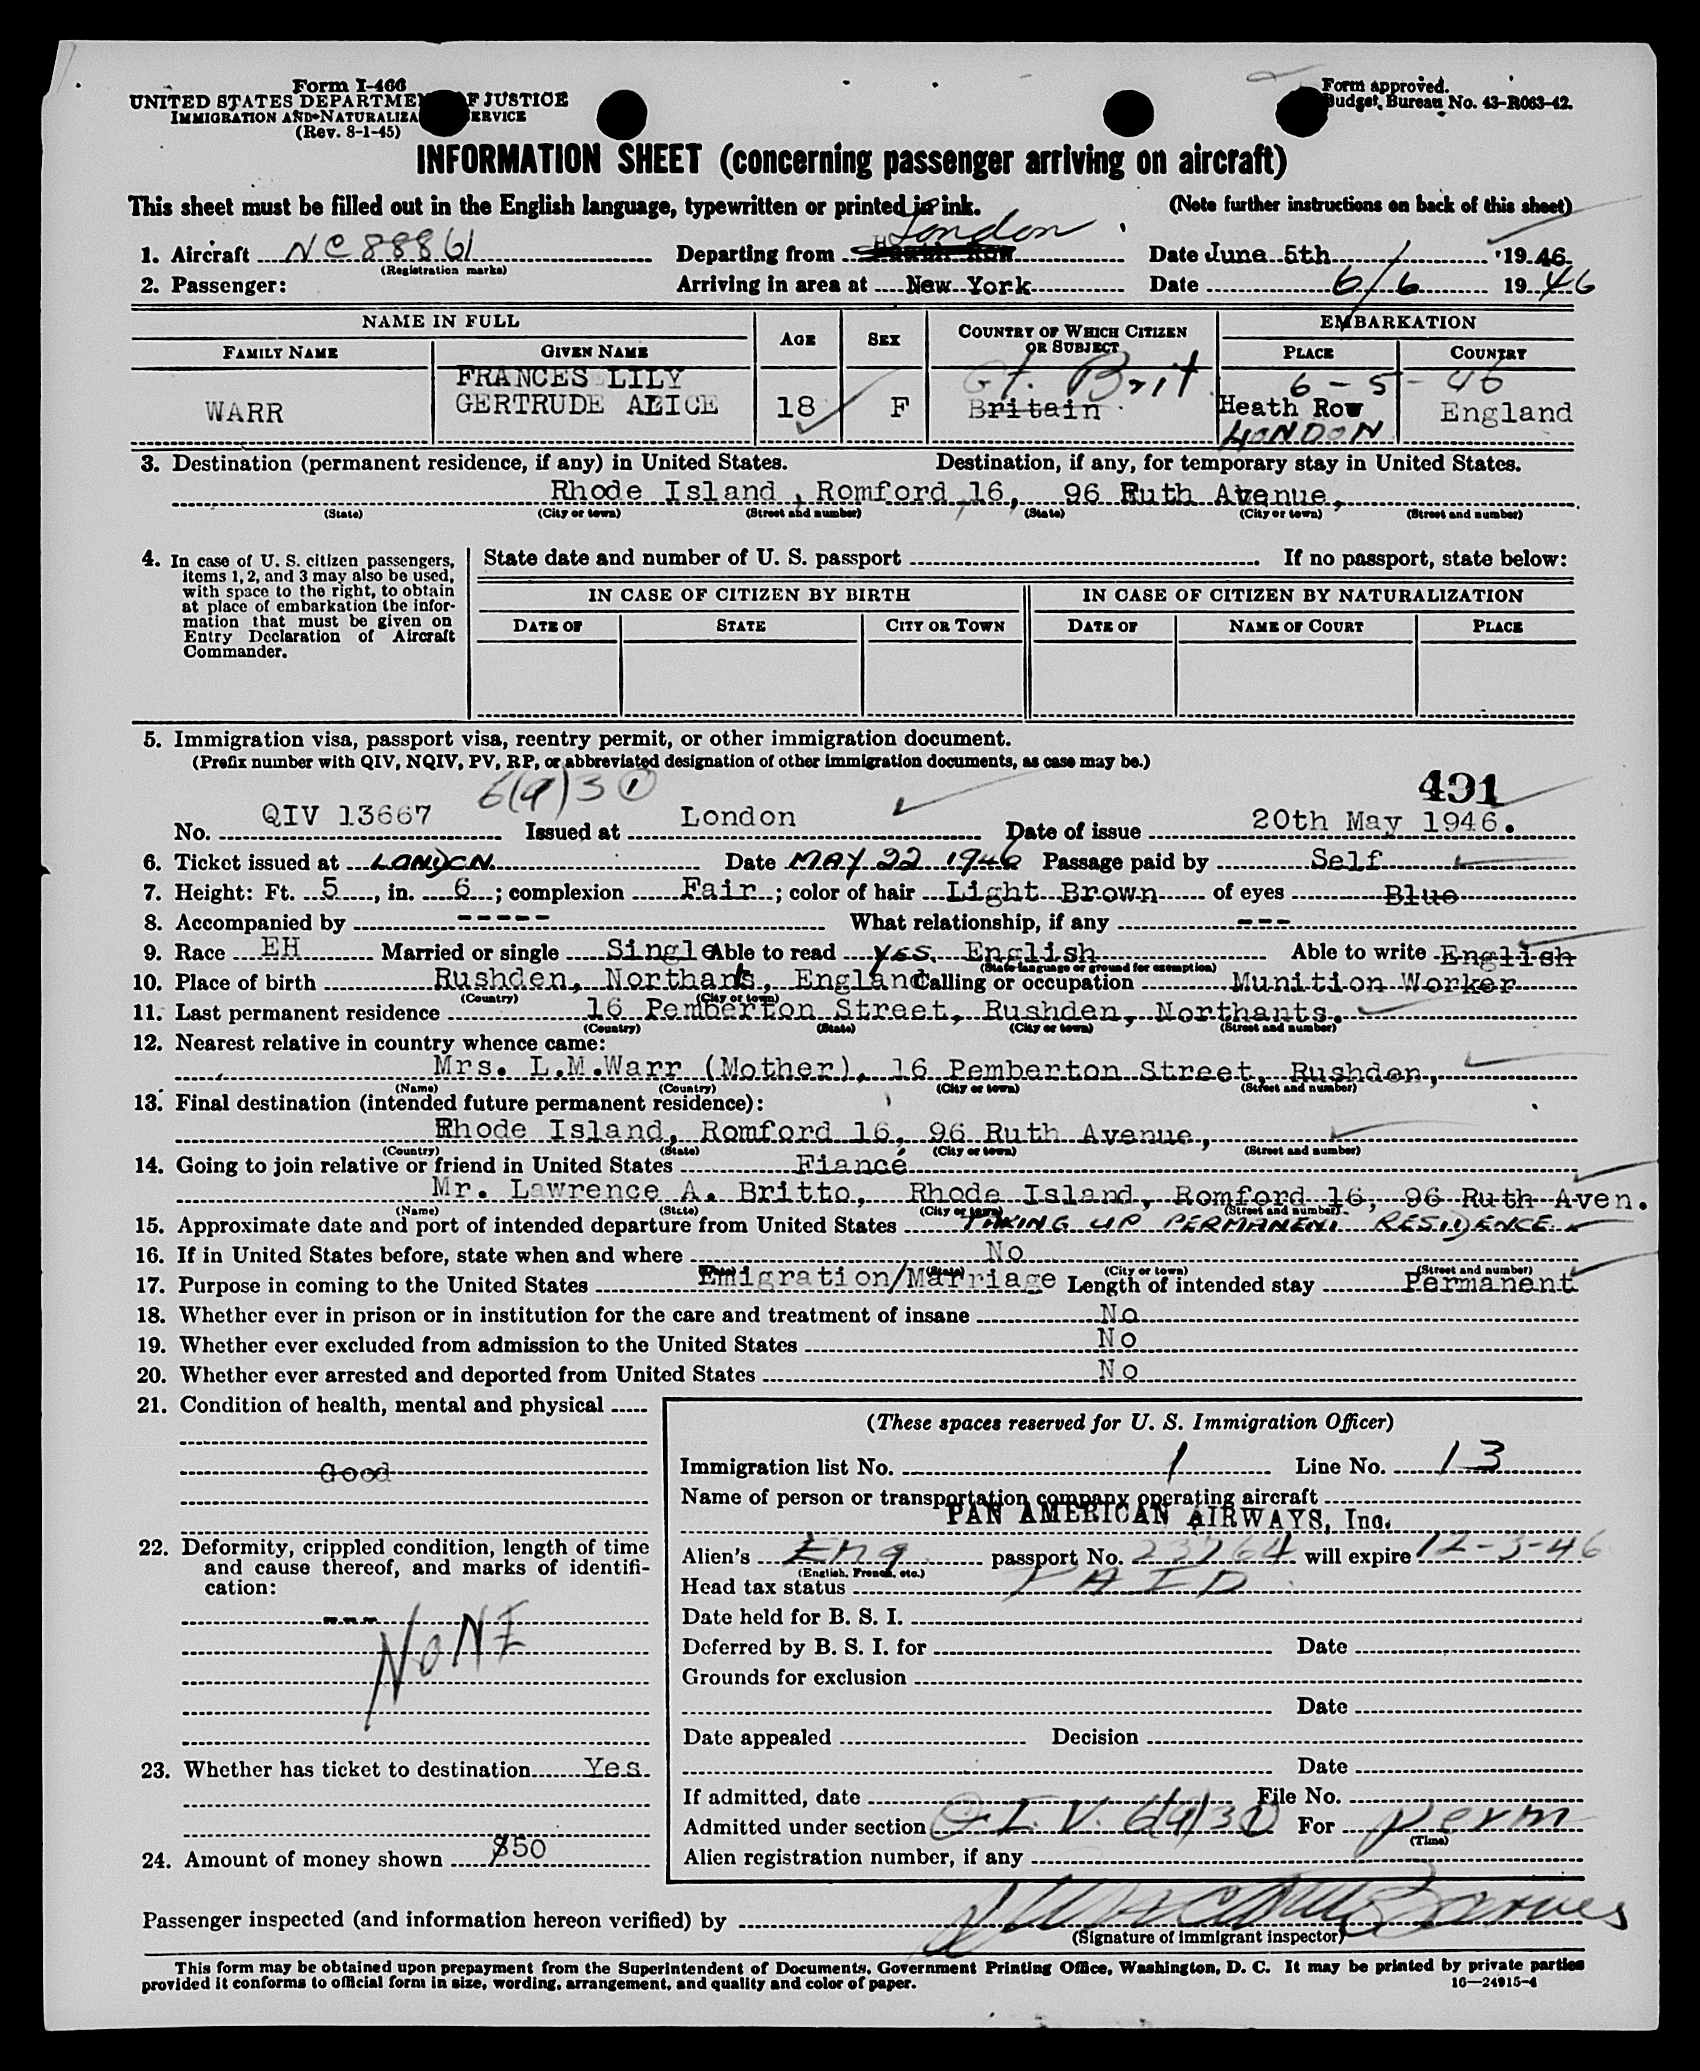 Form I-466
UNITED STATES DEPARTMENT OF JUSTICE
IMMIGRATION AND NATURALIZATION SERVICE
(Rev. 8-1-45)
Form approved.
Budget Bureau No. 43-R063-42.
INFORMATION SHEET (concerning passenger arriving on aircraft)
This sheet must be filled out in the English language, typewritten or printed in ink. (Note further instructions on back of this sheet)
London
1. Aircraft NC88861 Departing from Date June 5th 1946
(Registration marks)
2. Passenger: Arriving in area at New York Date 6/6 1946
NAME IN FULL AGE SEX COUNTRY OF WHICH CITIZEN OR SUBJECT EMBARKATION
FAMILY NAME GIVEN NAME PLACE COUNTRY
FRANCES LILY Gt. Brit 6-5-46
WARR GERTRUDE ALICE 18 F Britain Heath Row England
LONDON
3. Destination (permanent residence, if any) in United States. Destination, if any, for temporary stay in United States.
Rhode Island, Romford 16, 96 Ruth Avenue,
(State) (City or town) (Street and number) (State) (City or town) (Street and number)
4. In case of U. S. citizen passengers, items 1, 2, and 3 may also be used, with space to the right, to obtain at place of embarkation the information that must be given on Entry Declaration of Aircraft Commander.
State date and number of U. S. passport If no passport, state below:
IN CASE OF CITIZEN BY BIRTH IN CASE OF CITIZEN BY NATURALIZATION
DATE OF STATE CITY OR TOWN DATE OF NAME OF COURT PLACE
5. Immigration visa, passport visa, reentry permit, or other immigration document.
(Prefix number with QIV, NQIV, PV, RP, or abbreviated designation of other immigration documents, as case may be.)
6(a)3(1) 491
No. QIV 13667 Issued at London Date of issue 20th May 1946.
6. Ticket issued at LONDON Date MAY 22 1946 Passage paid by Self
7. Height: Ft. 5, in. 6; complexion Fair; color of hair Light Brown of eyes Blue
8. Accompanied by ----- What relationship, if any ---
9. Race EH Married or single Single Able to read YES. English Able to write English
(State language or ground for exemption)
10. Place of birth Rushden, Northants, England Calling or occupation Munition Worker
(Country) (City or town)
11. Last permanent residence 16 Pemberton Street, Rushden, Northants.
(Country) (State) (City or town) (Street and number)
12. Nearest relative in country whence came:
Mrs. L.M.Warr (Mother), 16 Pemberton Street, Rushden,
(Name) (Country) (City or town) (Street and number)
13. Final destination (intended future permanent residence):
Rhode Island, Romford 16, 96 Ruth Avenue,
(Country) (State) (City or town) (Street and number)
14. Going to join relative or friend in United States Fiancé
Mr. Lawrence A. Britto, Rhode Island, Romford 16, 96 Ruth Aven.
(Name) (State) (City or town) (Street and number)
15. Approximate date and port of intended departure from United States TAKING UP PERMANENT RESIDENCE
16. If in United States before, state when and where No
(State) (City or town) (Street and number)
17. Purpose in coming to the United States Emigration/Marriage Length of intended stay Permanent
18. Whether ever in prison or in institution for the care and treatment of insane No
19. Whether ever excluded from admission to the United States No
20. Whether ever arrested and deported from United States No
21. Condition of health, mental and physical
Good
22. Deformity, crippled condition, length of time and cause thereof, and marks of identification:
---
NONE
23. Whether has ticket to destination Yes
24. Amount of money shown $50
(These spaces reserved for U. S. Immigration Officer)
Immigration list No. 1 Line No. 13
Name of person or transportation company operating aircraft
PAN AMERICAN AIRWAYS, Inc.
Alien's Eng passport No. 23764 will expire 12-3-46
(English, French, etc.)
Head tax status PAID
Date held for B. S. I.
Deferred by B. S. I. for Date
Grounds for exclusion
Date
Date appealed Decision
Date
If admitted, date File No.
Admitted under section Q.I.V. 6(a)3(1) For perm
(Time)
Alien registration number, if any
Passenger inspected (and information hereon verified) by
(Signature of immigrant inspector)
This form may be obtained upon prepayment from the Superintendent of Documents, Government Printing Office, Washington, D. C. It may be printed by private parties
provided it conforms to official form in size, wording, arrangement, and quality and color of paper. 16—24915-4